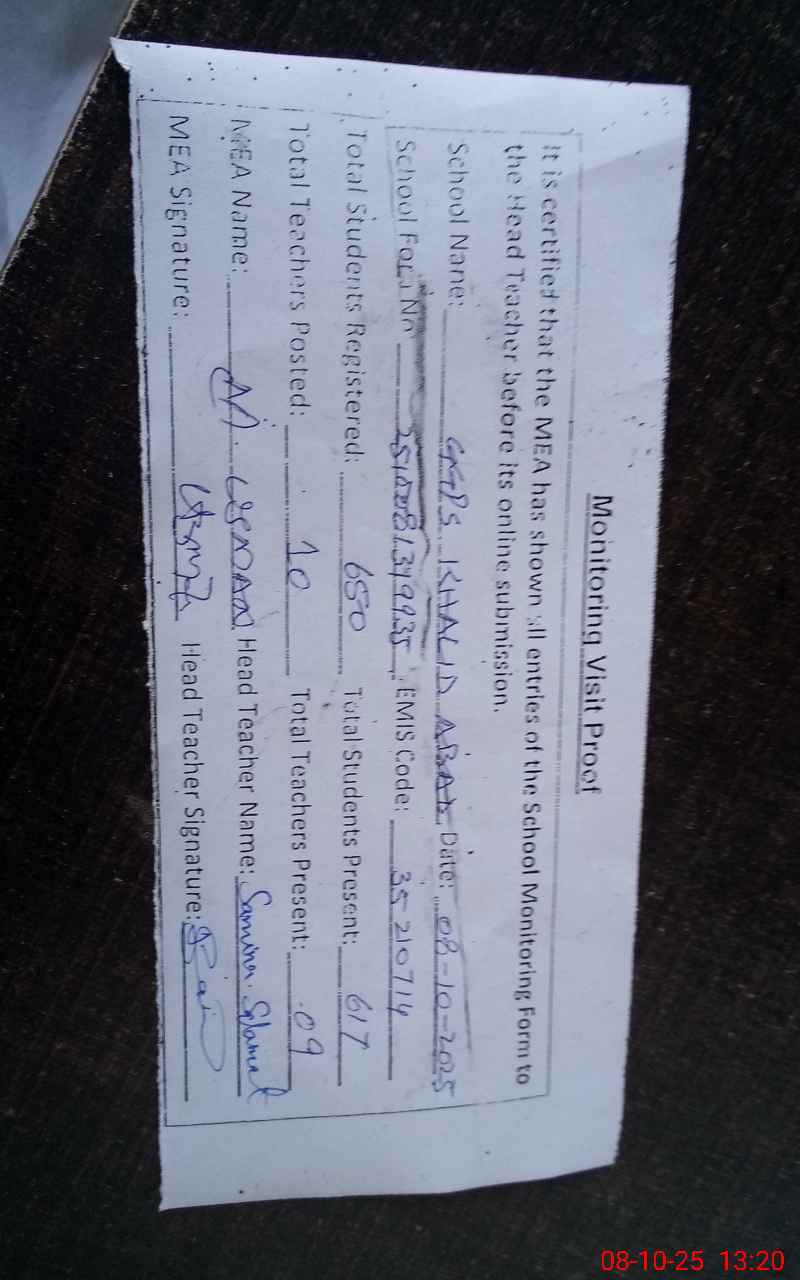 Monitoring Visit Proof
It is certified that the MEA has shown all entries of the School Monitoring Form to
the Head Teacher before its online submission.
School Name: GGPS KHALID ABAD Date: 08-10-2025
School Form No EMIS Code: 35210714
Total Students Registered: 650 Total Students Present: 617
Total Teachers Posted: 10 Total Teachers Present: 09
MEA Name: M. USMAN Head Teacher Name: Samina Salamat
MEA Signature: Head Teacher Signature:
08-10-25 13:20